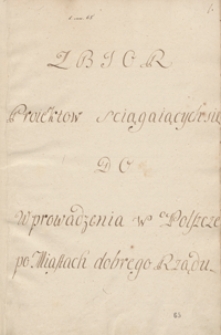 1.
ZBIOR
Proiektow sciągaiących się
DO
Wprowadzenia w Polszcze
po Miastach dobrego Rządu